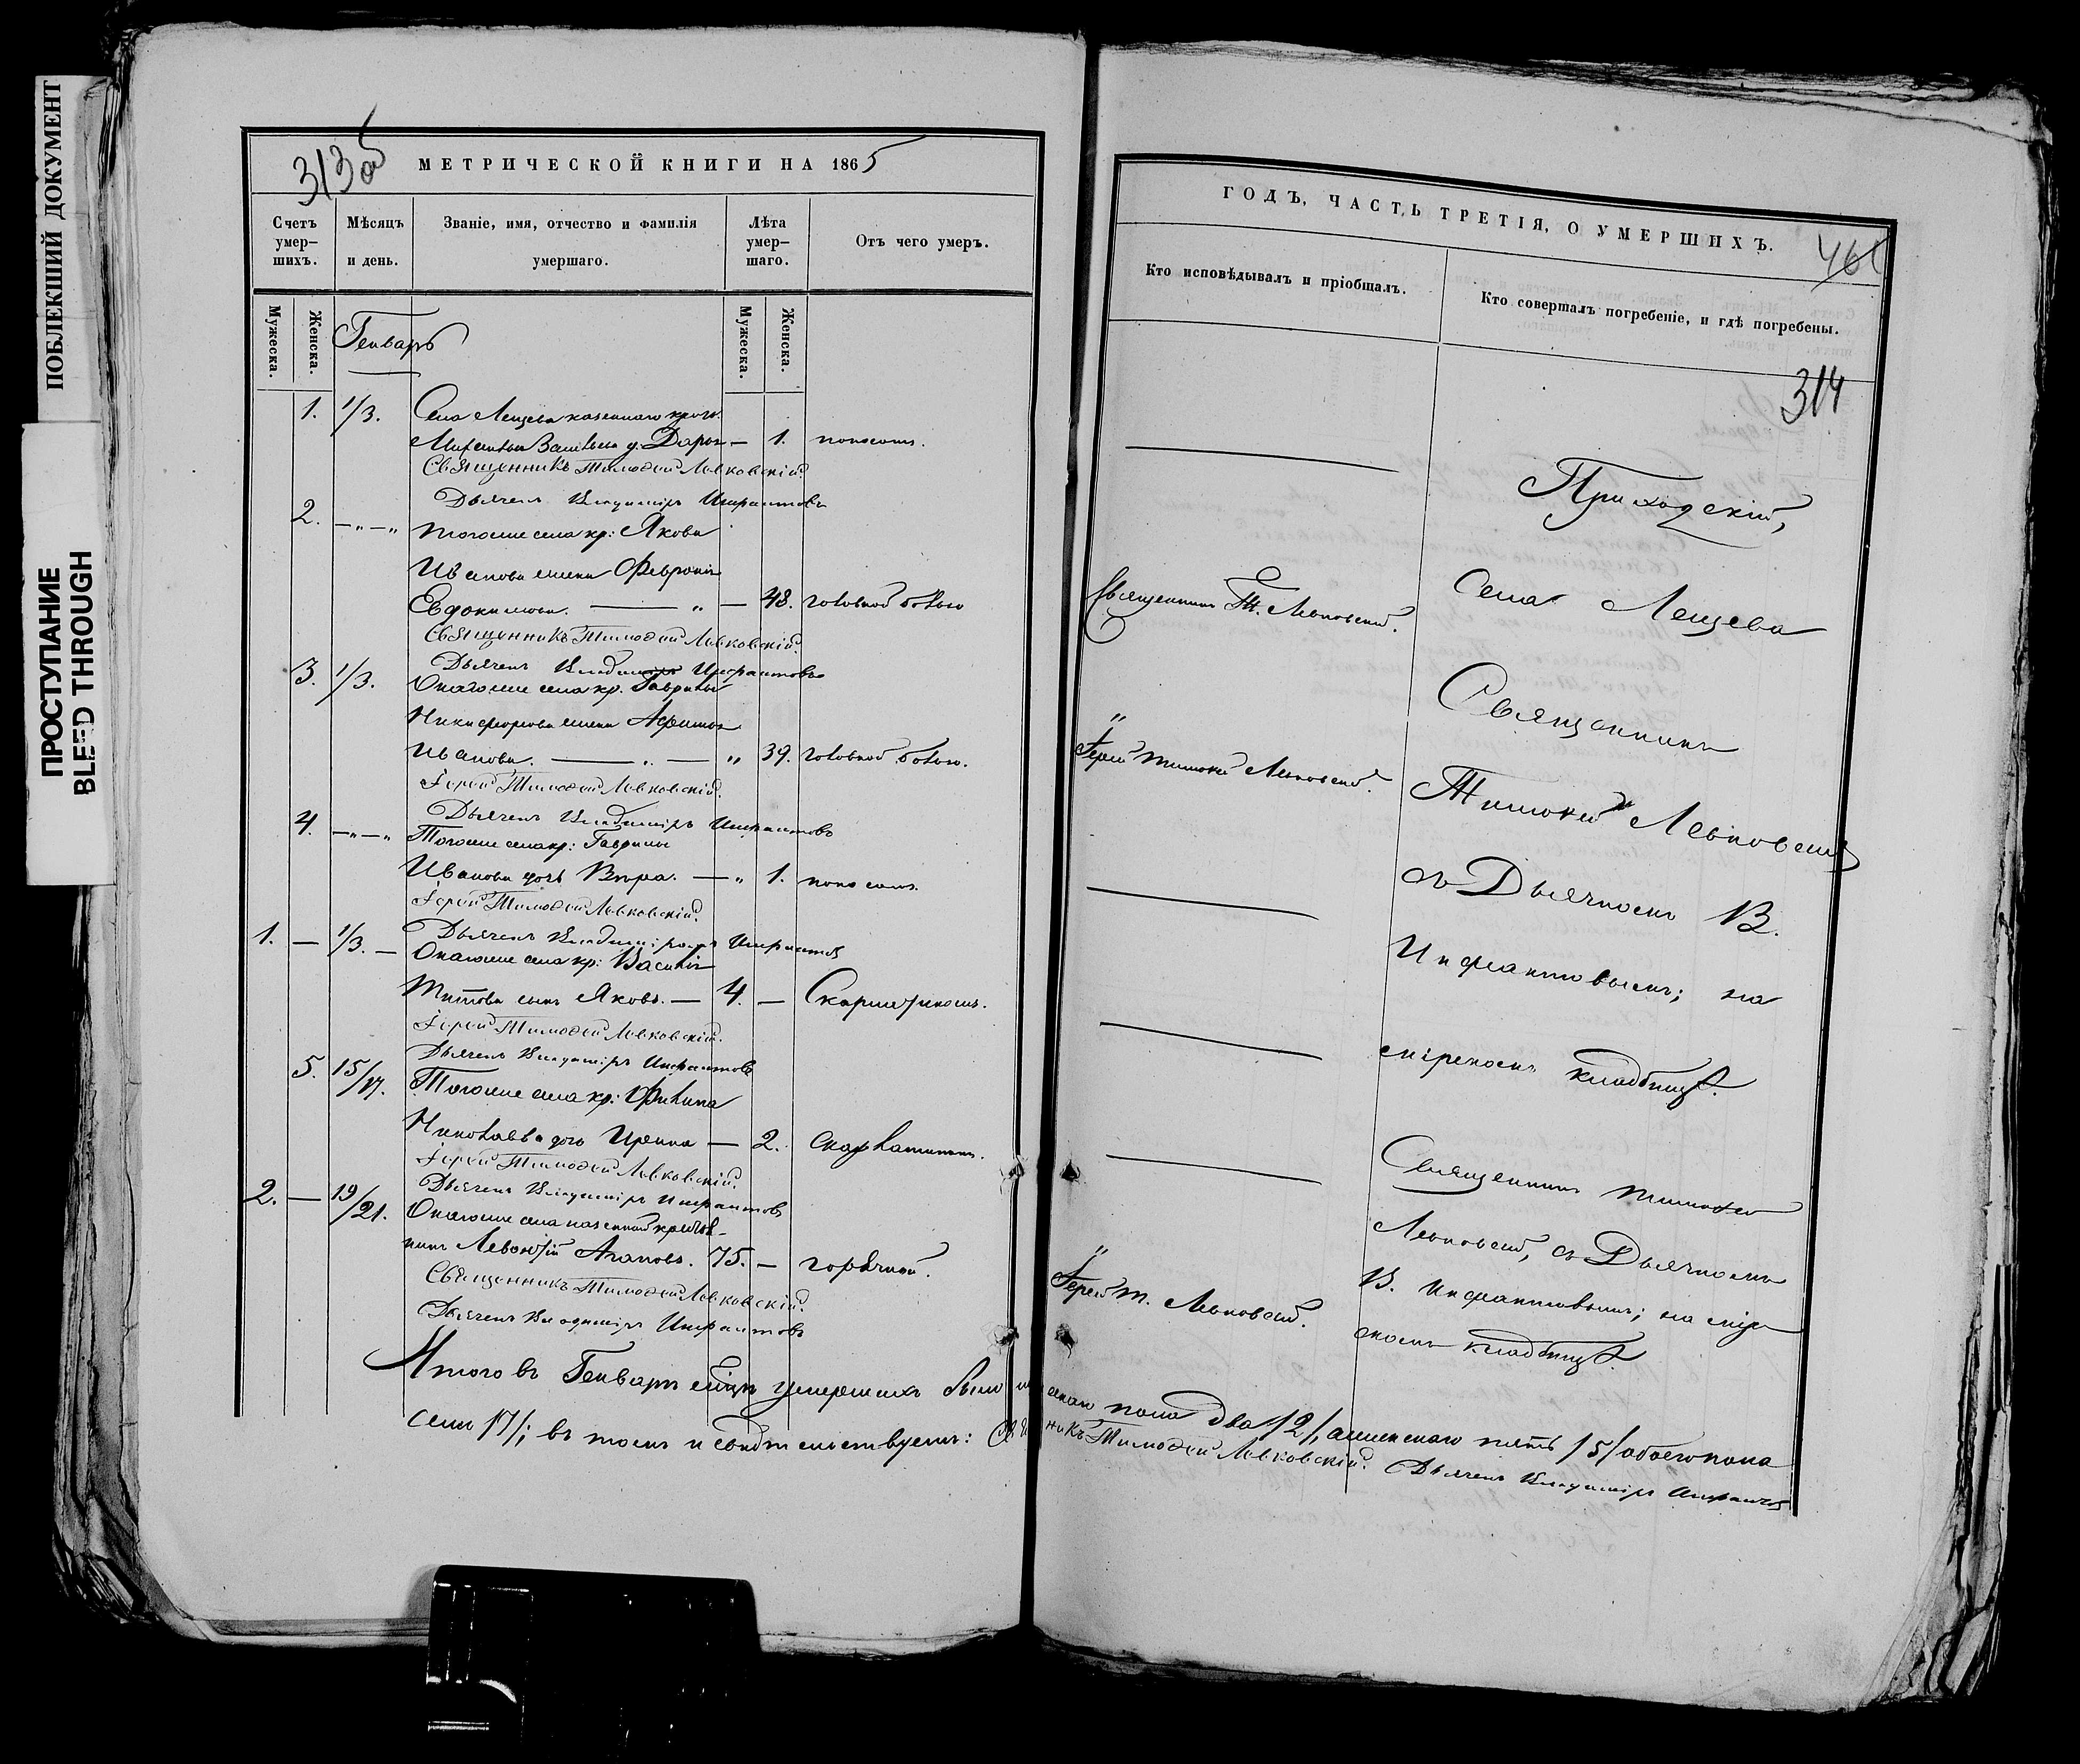 ПОБЛЕКШИЙ ДОКУМЕНТ
ПРОСТУПАНИЕ
BLEED THROUGH
313 об
МЕТРИЧЕСКОЙ КНИГИ НА 1865
Счетъ умер-шихъ.
Мѣсяцъ и день.
Званіе, имя, отчество и фамилія умершаго.
Лѣта умер-шаго.
Отъ чего умеръ.
Мужеска.
Женска.
Генварь
Мужеска.
Женска.
1. 1/3. Села Лещева казеннаго крест.
Васильева д. Дарья — 1. поносомъ.
Священникъ Тимофей Левковскій.
Дьячекъ Владиміръ Инфантовъ
2. —„—„ Тогоже села кр: Якова
Иванова жена Февронія
Евдокимова. — „ — 48. головной болью
Священникъ Тимофей Левковскій.
Дьячекъ Владиміръ Инфантовъ
3. 1/3. Онагоже села кр. Гаврилы
Никифорова жена
Иванова. — „ — „ 39. головной болью.
Іерей Тимофей Левковскій.
Дьячекъ Владиміръ Инфантовъ
4. —„—„ Тогоже села кр: Гаврилы
Иванова дочь Вѣра. — „ 1. поносомъ.
Іерей Тимофей Левковскій.
Дьячекъ Владиміръ Инфантовъ
1. — 1/3. — Онагоже села кр: Василія
Титова сынъ Яковъ. — 4. — Скарлатиномъ.
Іерей Тимофей Левковскій.
Дьячекъ Владиміръ Инфантовъ
5. 15/17. Тогоже села кр: Филипа
Николаева дочь Ирина — 2. скарлатиномъ.
Іерей Тимофей Левковскій.
Дьячекъ Владиміръ Инфантовъ
2. — 19/21. Онагоже села казенной крестья-
нинъ Агаповъ. 75. — горячкой.
Священникъ Тимофей Левковскій.
Дьячекъ Владиміръ Инфантовъ
Итого въ Генварѣ мѣсяцѣ умершихъ было
семь /7/; въ томъ и свидѣтельствуемъ:
ГОДЪ, ЧАСТЬ ТРЕТІЯ, О УМЕРШИХЪ.
461
Кто исповѣдывалъ и пріобщалъ.
Кто совершалъ погребеніе, и гдѣ погребены.
314
Приходскій,
Священникъ Т. Левковскій.
Села Лещева
Священникъ
„
Іерей Тимофей Левковскій.
Тимофей Левковскій
съ Дьячкомъ В.
Инфантовымъ; на
мірскомъ кладбищѣ.
Священникъ Тимофей
Левковскій, съ Дьячкомъ
„
Іерей Т. Левковскій.
В. Инфантовымъ; на мір-
скомъ кладбищѣ.
пола два /2/, а женскаго пять /5/ обоего пола
Священникъ Тимофей Левковскій. Дьячекъ Владиміръ Инфантовъ